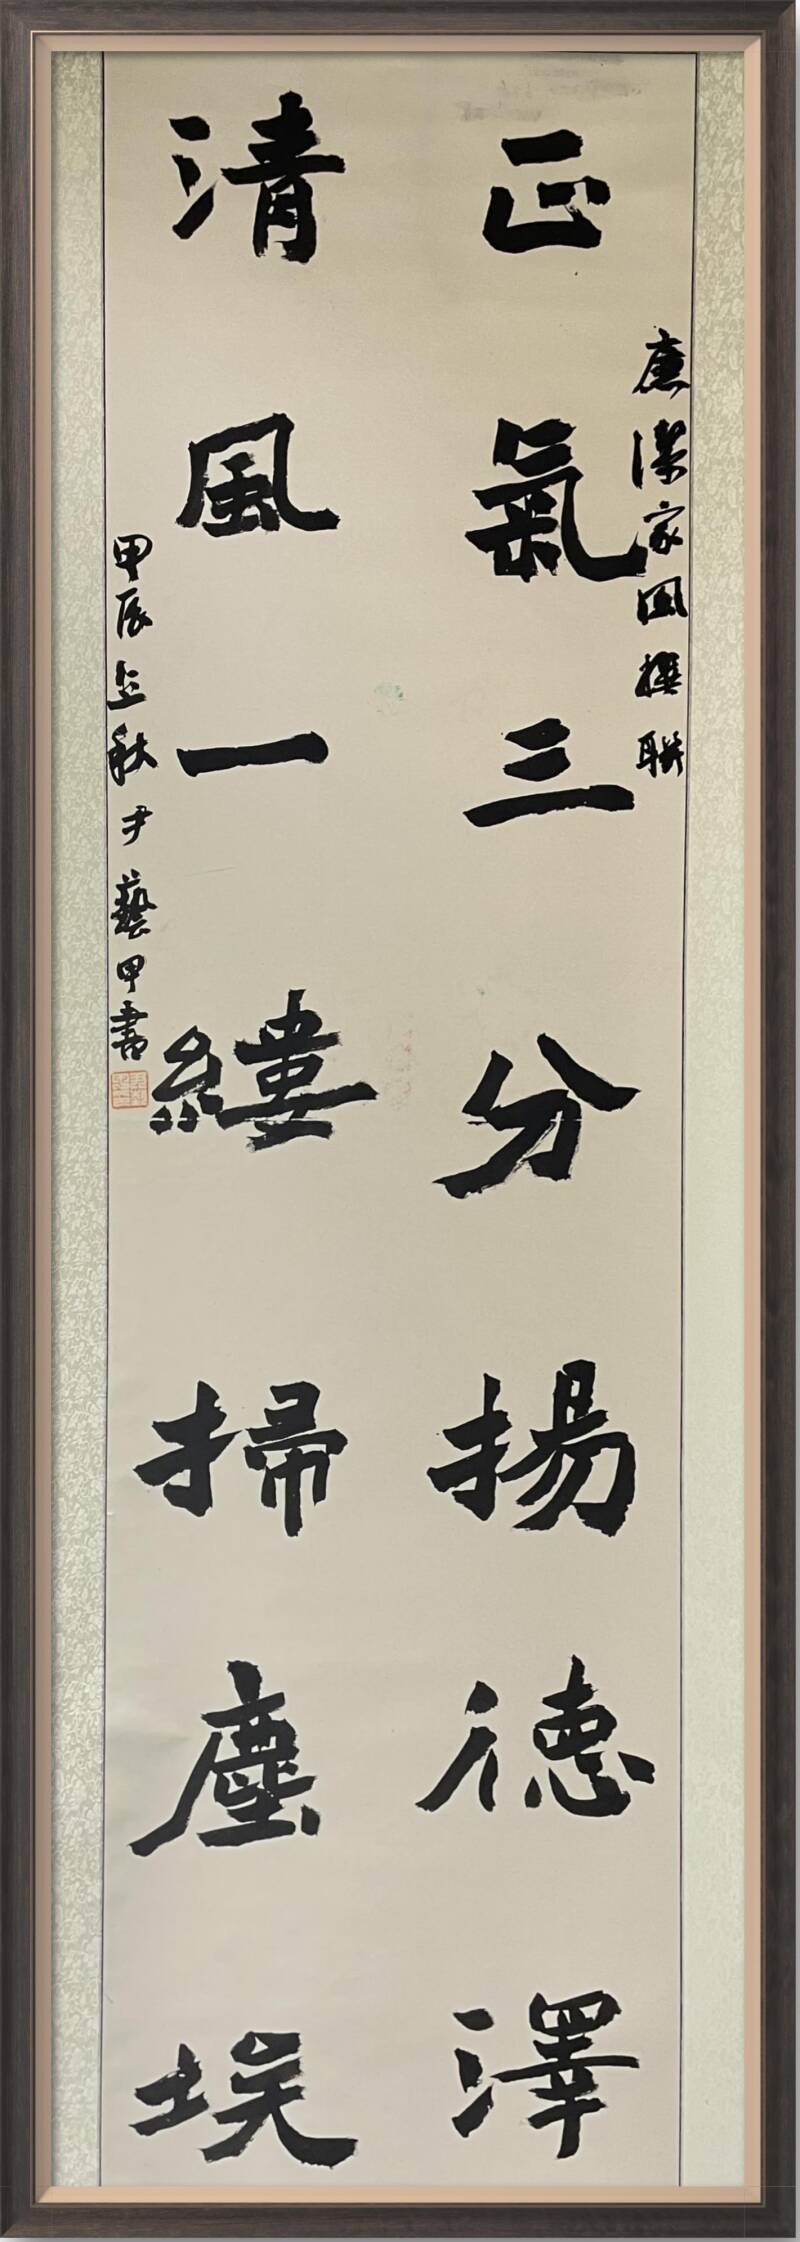 廉潔家風撰聯
正氣三分揚德澤
清風一縷掃塵埃
甲辰立秋尹藝甲書